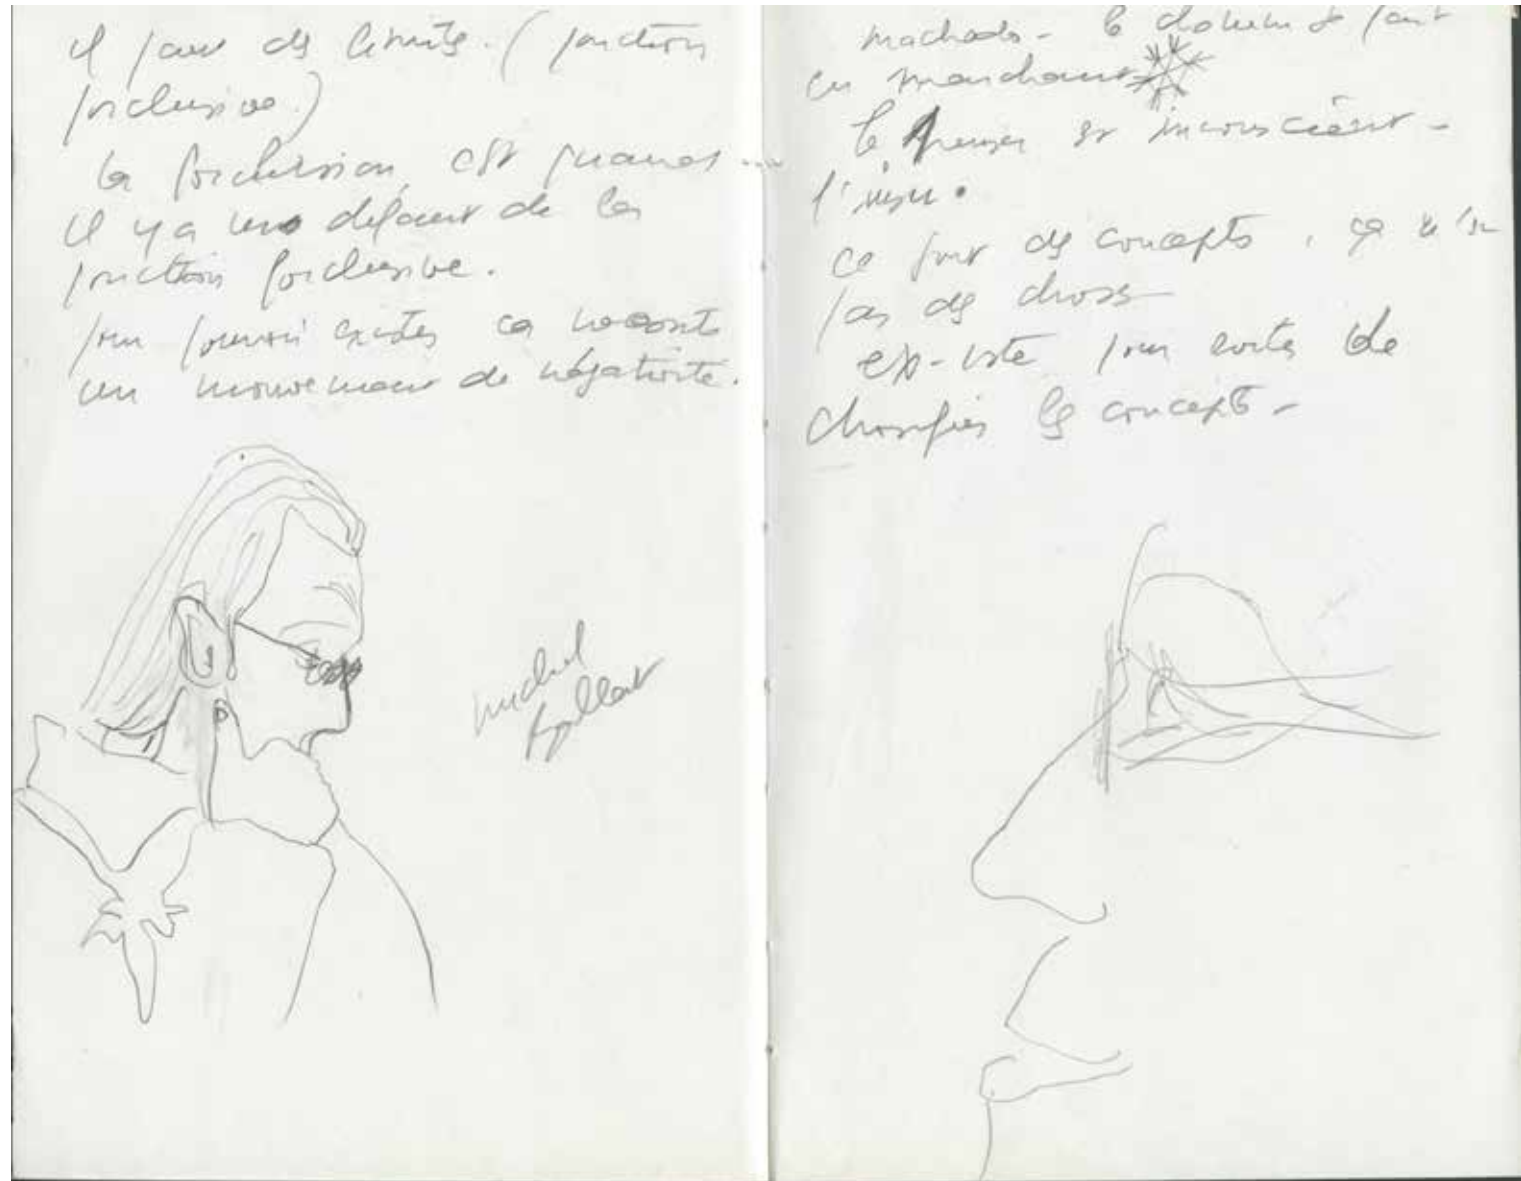 il faut des limites. (fonction
forclusive.)
la forclusion, est quand ...
il y a un défaut de la
fonction forclusive.
pour pouvoir exister ça nécessite
un mouvement de négativité.
michel
Balat
machado - le chemin se fait
en marchant
le penser est inconscient -
l'insu.
ce sont des concepts, ça n'est
pas des choses
ex-iste pour éviter de
chosifier les concepts -